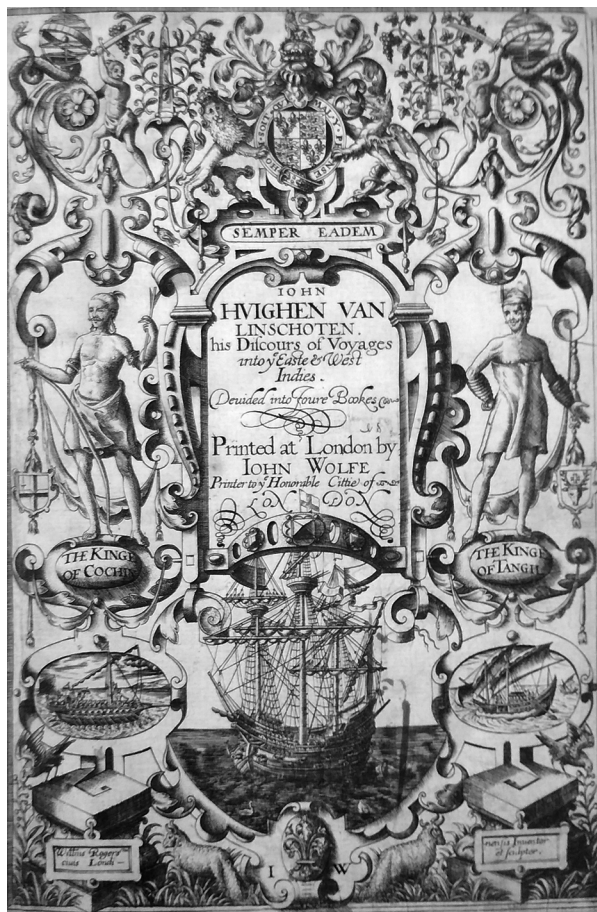 HONI SOIT QVI MAL Y PENSE
SEMPER EADEM
IOHN
HVIGHEN VAN
LINSCHOTEN.
his Discours of Voyages
into yͤ Easte & West
Indies.
Deuided into foure Bookes
Printed at London by
IOHN WOLFE
Printer to yͤ Honorable Cittie of
LONDON
THE KINGE
OF COCHIN
THE KINGE
OF TANGIL
Willms Rogers
ciuis Londi-
nensis Inuentor
et sculptor.
I W